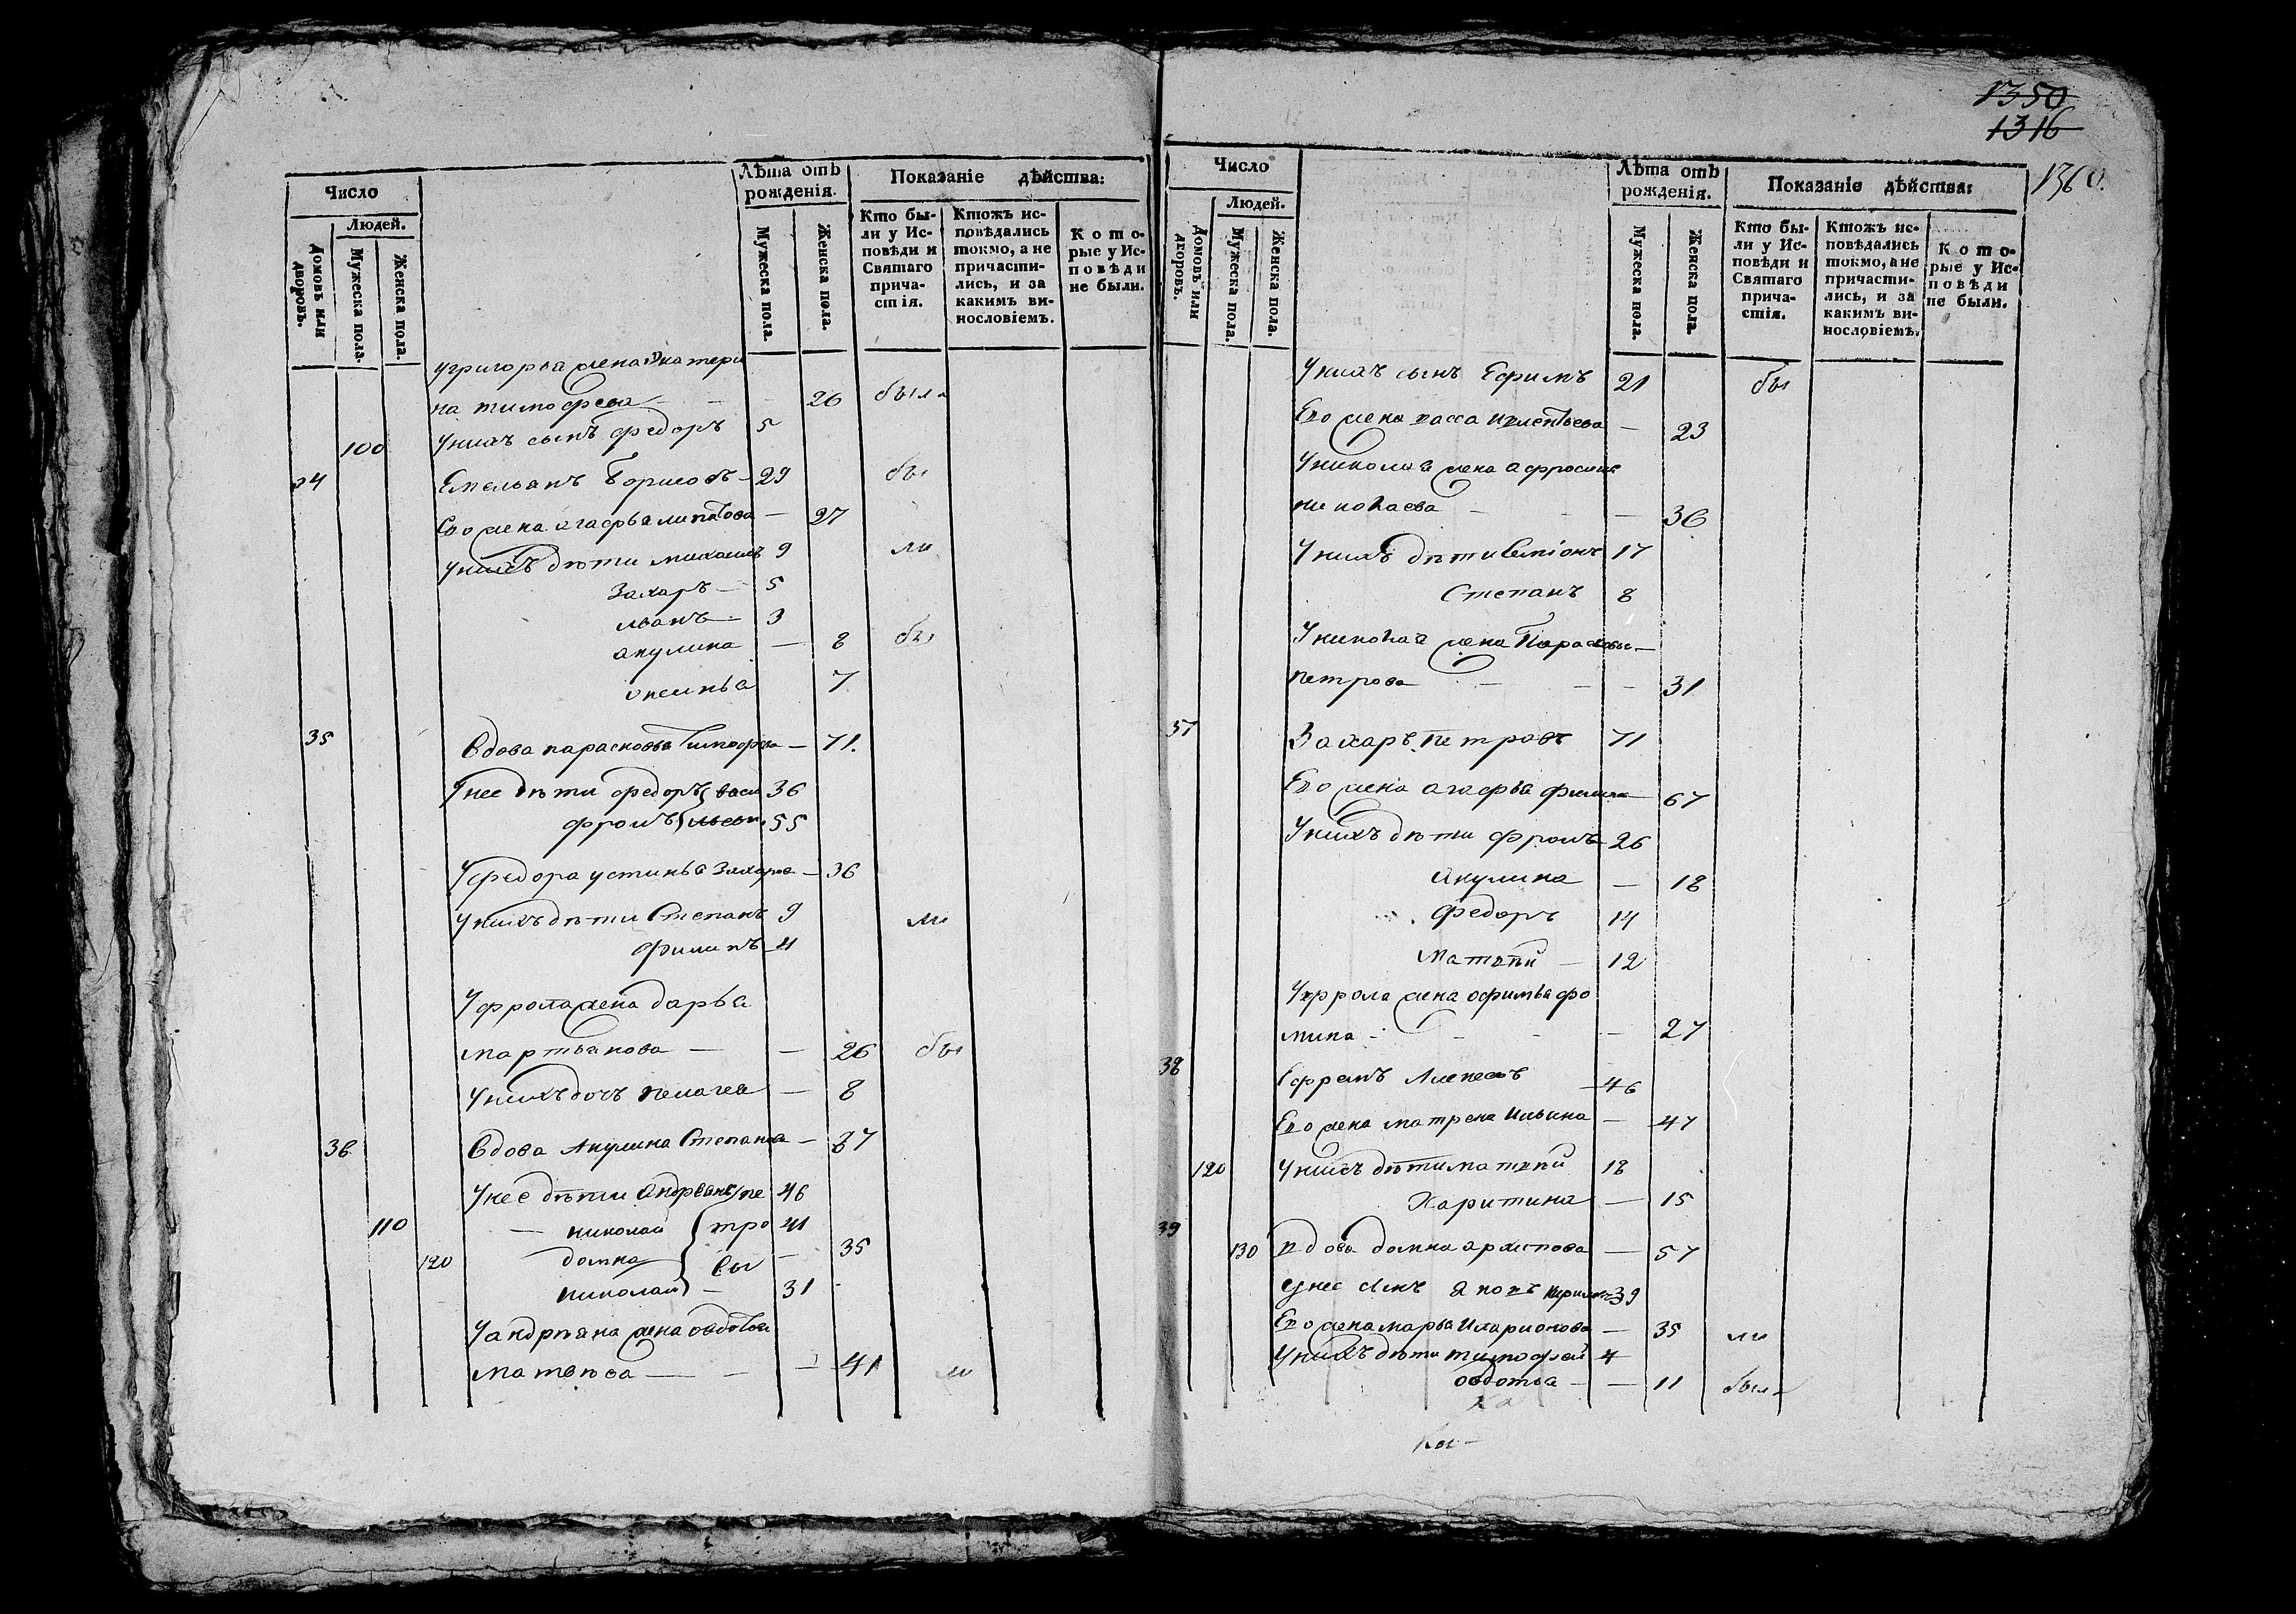 Число
Лѣта отъ рожденія.
Показаніе дѣйства:
Людей.
Домовъ или дворовъ.
Мужеска пола.
Женска пола.
Мужеска пола.
Женска пола.
Кто были у Исповѣди и Святаго причастія.
Ктожъ исповѣдались токмо, а не причастились, и за какимъ винословіемъ.
Которые у Исповѣди не были.
Угригорья жена Екатери
на тимофеева 26 была
100 Унихъ сынъ федоръ 5
34 Емельянъ Борисовъ 29 бы
Его жена агафья 27
Унихъ дѣти михаилъ 9 ли
Захаръ 5
иванъ 3
акулина 8 бы
7
35 Вдова парасковья Тимофева 71.
Унее дѣти федоръ васи 36
фролъ льевы 35
Уфедора устинья Захарова 36
Унихъ дѣти Степанъ 9 ли
филипъ 4
Уфрола жена дарья
мартьянова 26 бы
Унихъ дочь пелагея 8
36 Вдова Акулина Степанова 87
Унее дѣти андреянъ пе 46
110 николай тро 41
120 домна вы 35
николай 31
Уандрѣяна жена овдотья
матвѣва 41 ли
1350
1316
1360.
Число
Лѣта отъ рожденія.
Показаніе дѣйства:
Людей.
Домовъ или дворовъ.
Мужеска пола.
Женска пола.
Мужеска пола.
Женска пола.
Кто были у Исповѣди и Святаго причастія.
Ктожъ исповѣдались токмо, а не причастились, и за какимъ винословіемъ.
Которые у Исповѣди не были.
Унихъ сынъ Ефимъ 21 бы
Его жена 23
Униколая жена афросинья
николаева 36
Унихъ дѣти Семіонъ 17
Степанъ 8
Униколая жена Парасковья
петрова 31
37 Захаръ петровъ 71
Его жена агафья 67
Унихъ дѣти фролъ 26
Акулина 18
федоръ 14
Матвѣй 12
Уфрола жена офимья фо
мина 27
38 Ефремъ 46
Его жена матрена Ильина 47
120 Унихъ дѣти матвѣй 18
Харитина 15
39 130 вдова домна архипова 57
Унее сынъ яковъ 39
Его жена марья Иларионова 35 ли
Унихъ дѣти тимофей 4
овдотья 11 были